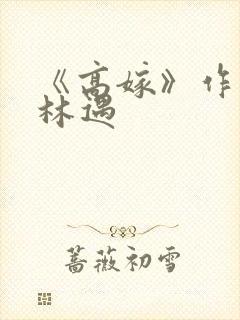 《高嫁》作
林遇
蔷薇初雪